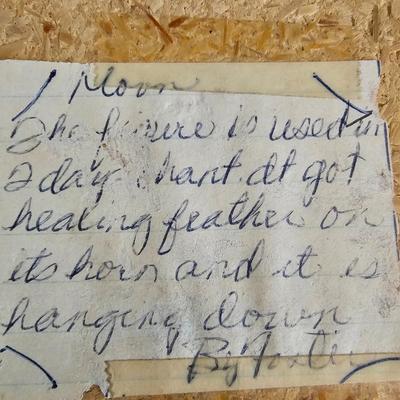 Moon
The figure is used in
2 day chant. It got
healing feather on
its horn and it is
hanging down
By